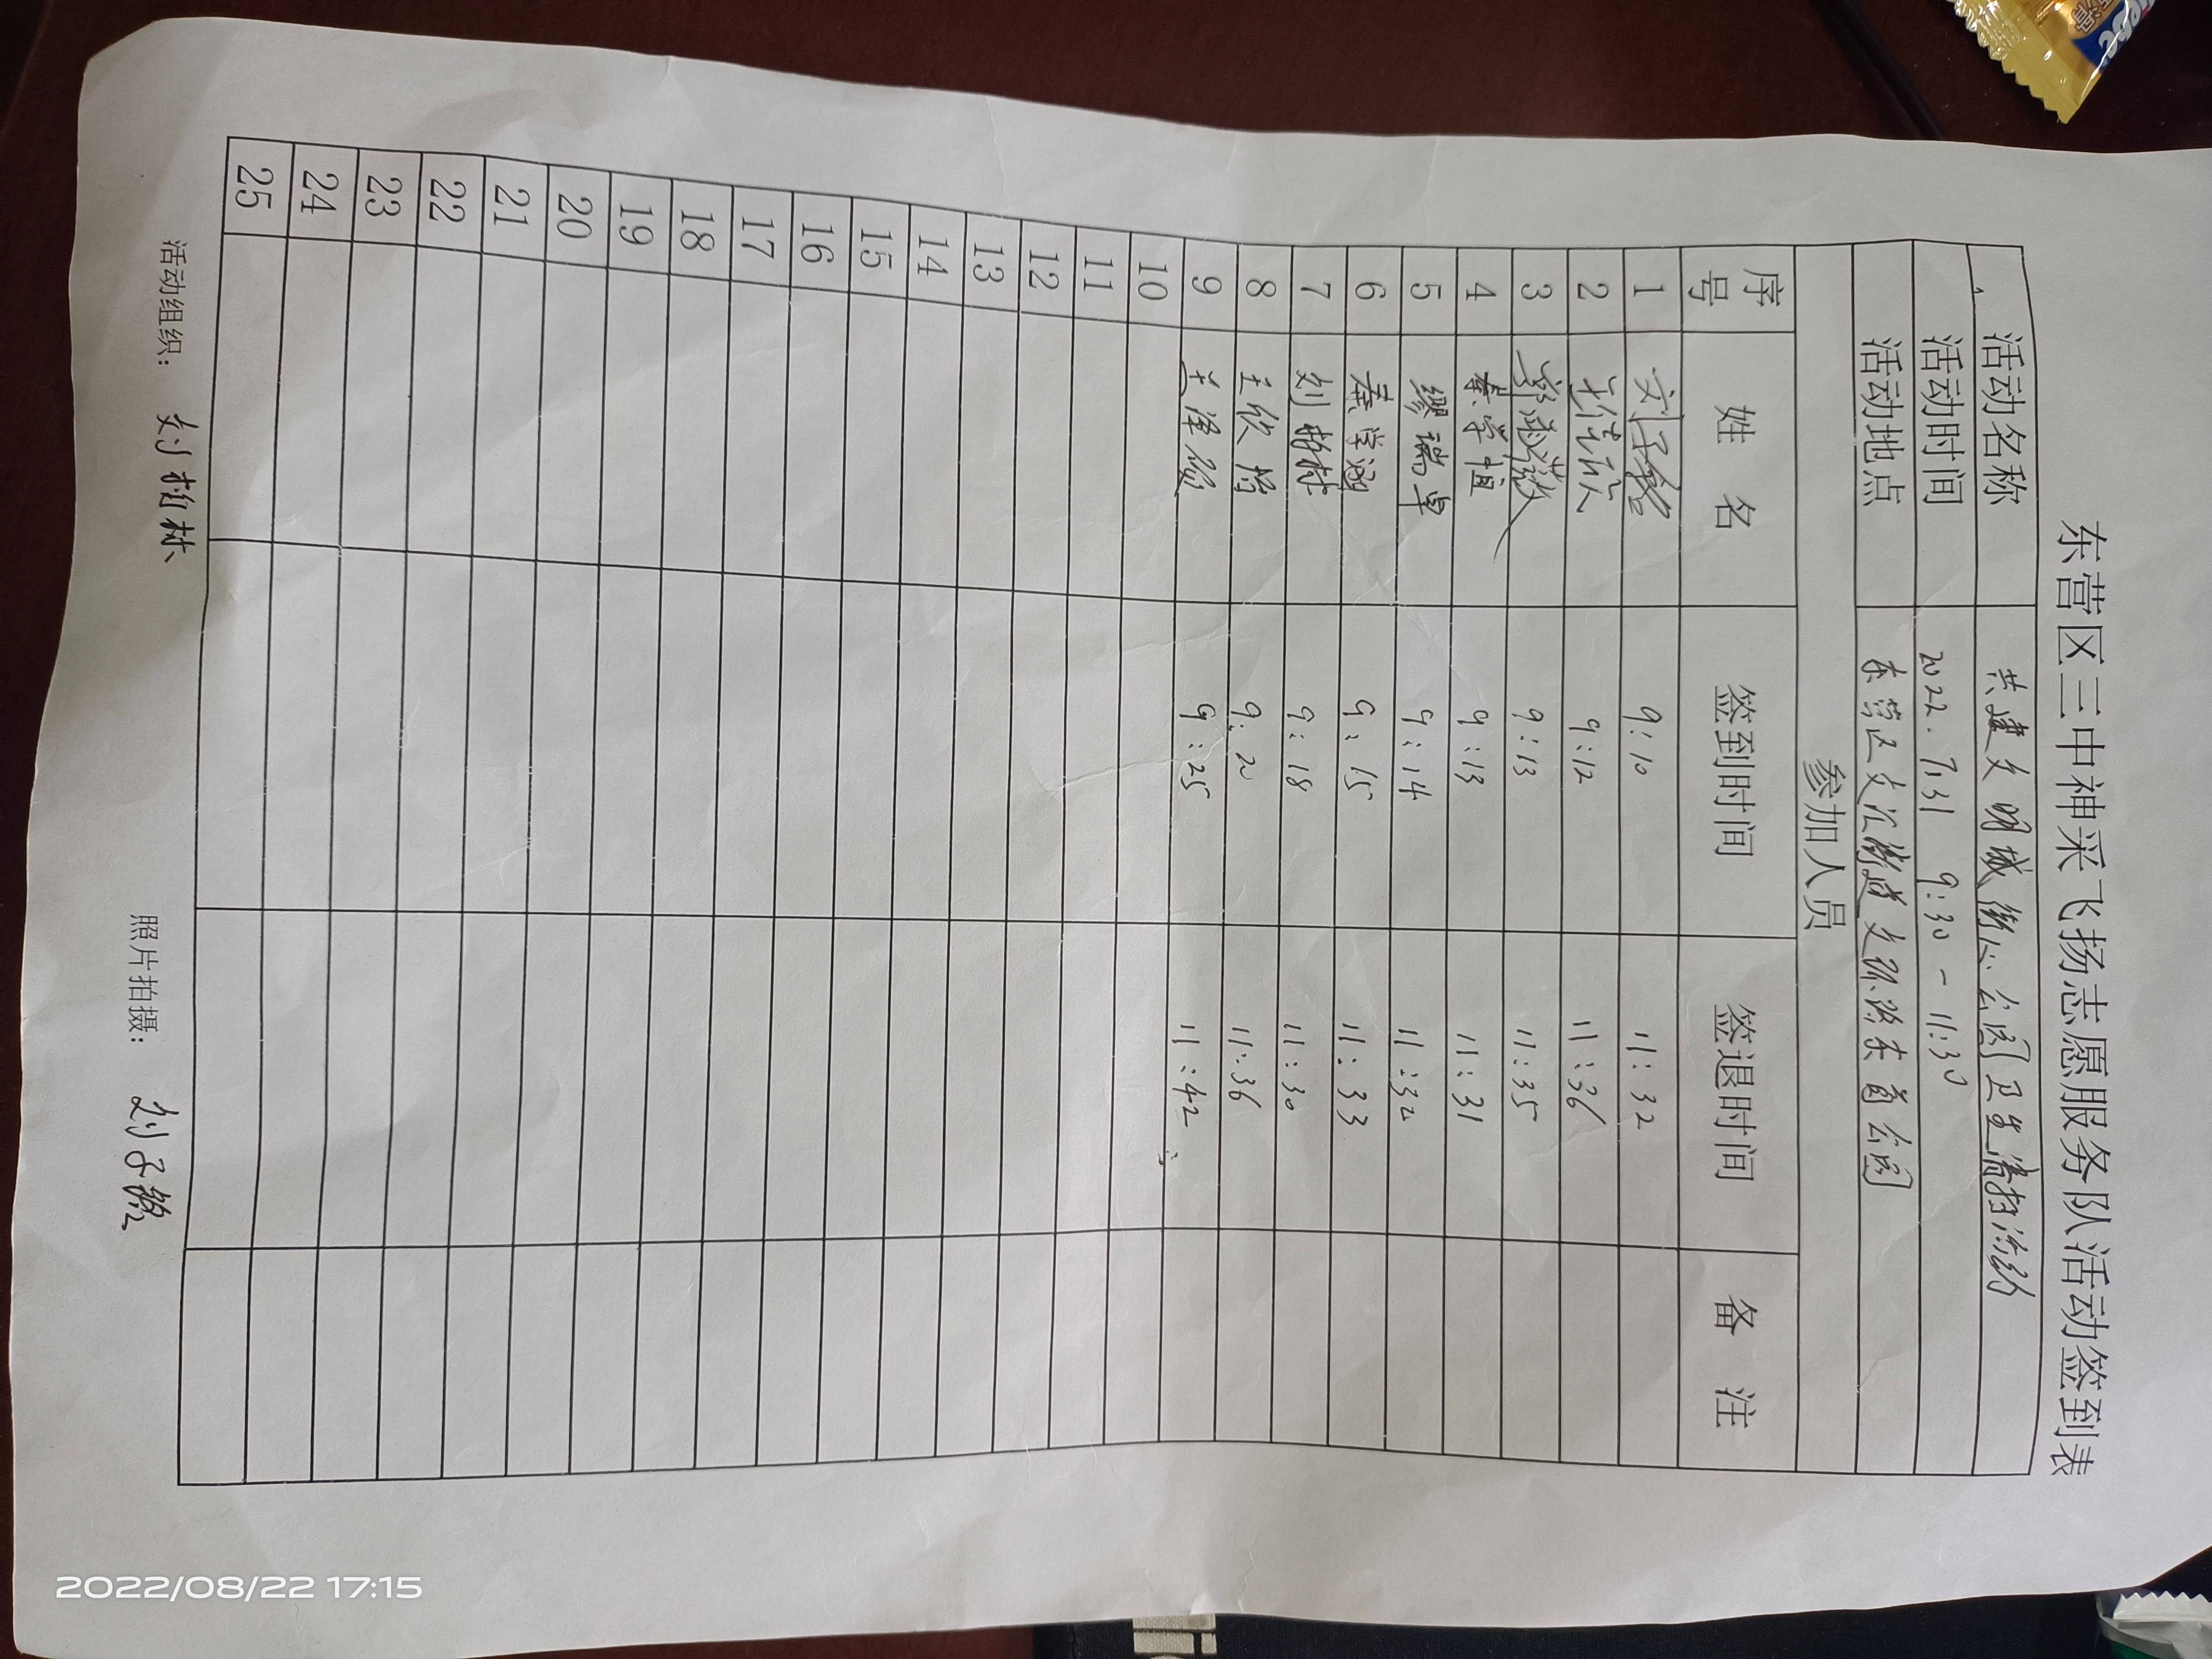 东营区三中神采飞扬志愿服务队活动签到表
活动名称 共建文明城 街心公园卫生清扫活动
活动时间 2022.7.31 9:30-11:30
活动地点 东营区文汇街道 东首公园
参加人员
序号 姓名 签到时间 签退时间 备注
1 刘子铭 9:10 11:32
2 9:12 11:36
3 9:13 11:35
4 秦学恒 9:13 11:31
5 缪瑞卓 9:14 11:32
6 秦学涵 9:15 11:33
7 刘柏林 9:18 11:30
8 王欣 9:20 11:36
9 9:25 11:42
10
11
12
13
14
15
16
17
18
19
20
21
22
23
24
25
活动组织： 刘柏林 照片拍摄： 刘子
2022/08/22 17:15